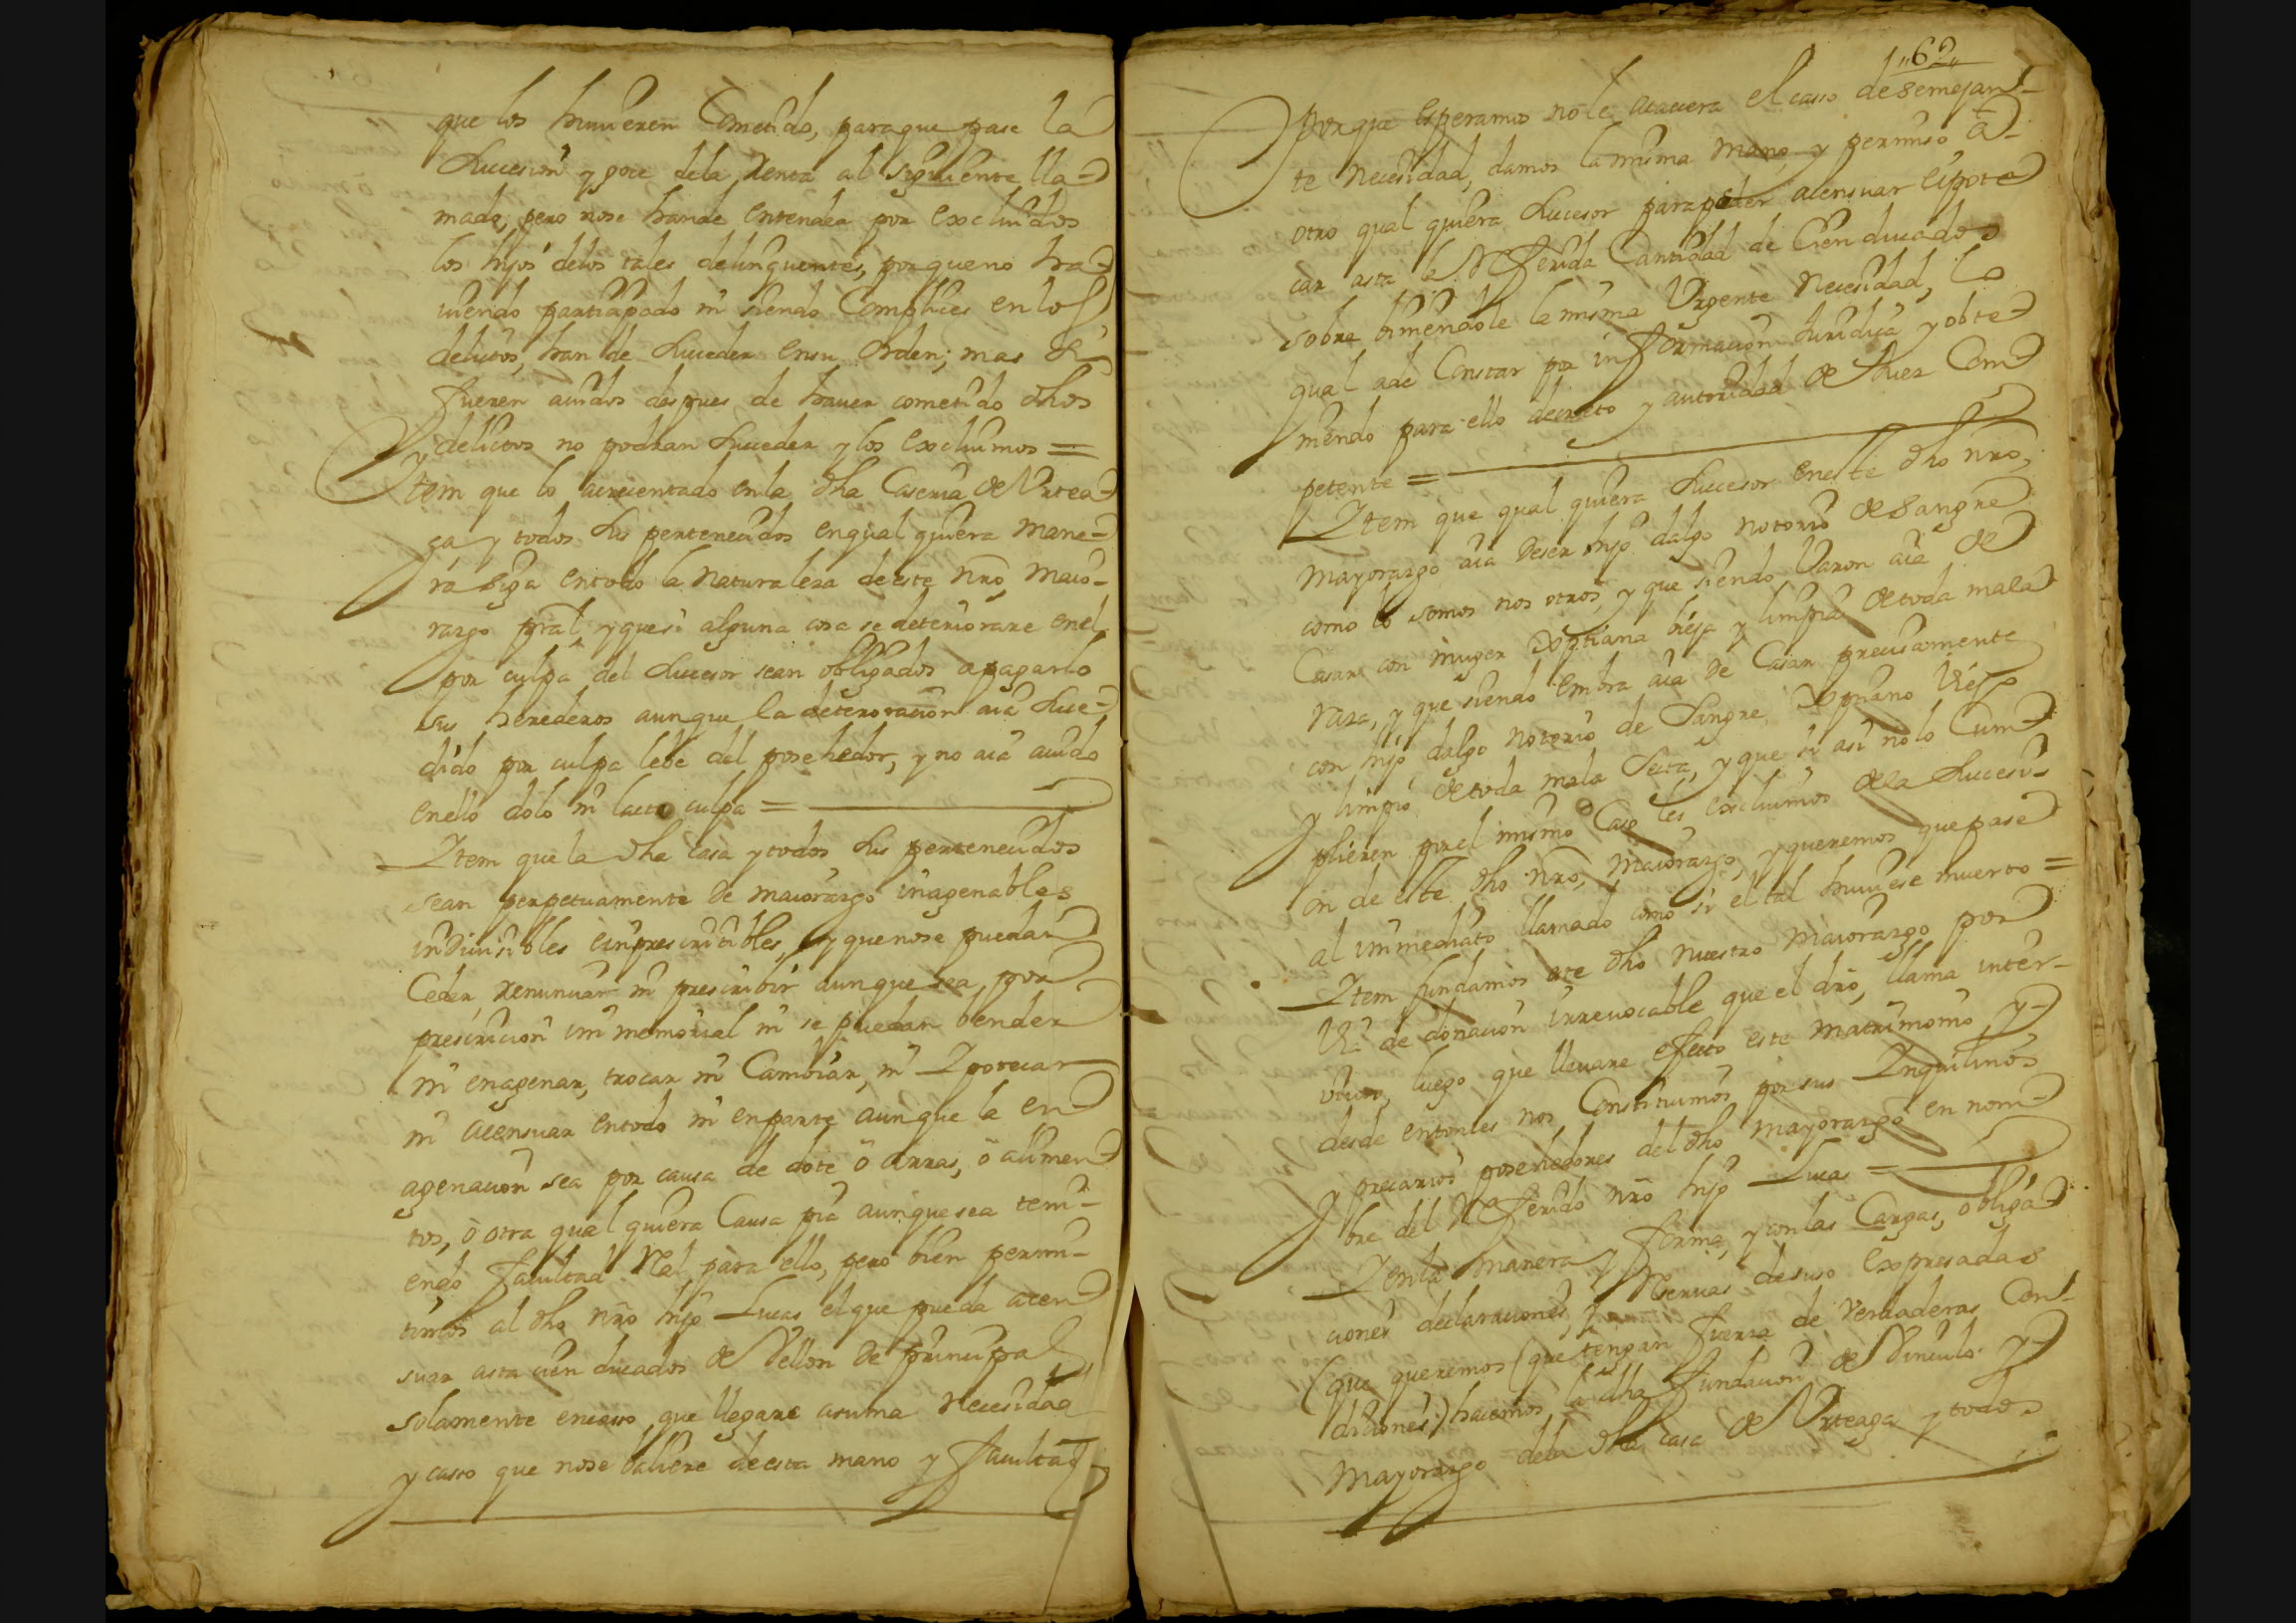 que los huuieren Cometido, paraque pase la
Sucesion y goce dela Renta al siguiente lla-
mado, pero nose hande entender por excluidos
los hijos delos tales delinquentes, porqueno ha-
uiendo partiapado ni siendo Complices en los
delictos, han de Suceder ensu orden; mas si
fueren auidos despues de hauer cometido dhos
delictos no podran Suceder y los excluimos =
Ytem que lo acrecentado enla dha Caseria de Vrtea-
ga y todos sus pertenecidos enqual quiera mane-
ra siga entodo la naturaleza deeste nro, maio-
razgo pral, yquesi alguna cosa se deteriorare enel
por culpa del Sucesor sean obligados apagarlo
sus herederos aunque la deterioracion aia suce-
dido por culpa lebe del posehedor, y no aia auido
enello dolo ni lacta culpa =
Ytem que la dha casa ytodos sus pertenecidos
sean perpetuamente de maiorazgo inagenables
indiuisibles eimprescritibles, yquenose puedan
Ceder renunciar ni prescribir aunque sea por
prescricion immemorial ni se puedan bender
ni enagenar, trocar ni Cambiar, ni Ypotecar
ni acensuar entodo ni enparte aunque la en
agenacion sea por causa de dote ô arras, ô alimen
tos, ô otra qual quiera Causa pia aunquesea teni-
endo facultad Real para ello, pero bien permi-
timos al dho nro hijo Lucas elque pueda acen
suar asta cien ducados de Vellon de principal
solamente encaso que llegare asuma necesidad
y casso que nose baliere deesta mano y facultad
62
Porque esperamos nole acaecera el casso desemejan-
te necesidad, damos lamisma mano, y permiso â
otro qual quiera Sucesor parapoder acensuar eipote
car asta la Referida Cantidad de Cien ducados
sobre biniendole lamisma Vrgente necesidad, lo
qual ade Constar por informacion Juridica yobte
niendo para ello decreto y autoridad de Juez Com
petente =
Ytem que qual quiera Sucesor eneste dho nro,
Mayorazgo aia deser hijo dalgo notorio de sangre
como lo somos nos otros, y que siendo Varon aia de
Casar con muger Xptiana bieja y limpia detoda mala
raza, y que siendo embra aia de Casar precisamente
con hijo dalgo notorio de Sangre Xptiano Viejo
y limpio detoda mala Secta, y que si asi nolo Cum
plieren porel mismo Caso les excluimos dela Sucesi-
on de este dho nro, maiorazgo, yqueremos quepase
al immediato llamado como si el tal huuiese muerto =
Ytem fundamos este dho nuestro maiorazgo por
Via de donacion irreuocable que el dro, llama inter-
viuos, luego que lleuare efecto este matrimonio y
desde entonces nos Constituimos por sus Ynquilinos
y precarios posehedores del dho mayorazgo en nom
bre del Referido nro hijo Lucas =
Yenla manera y forma, yconlas Cargas, obliga
ciones declaraciones, y Reseruas desuso expresadas
(que queremos (que tengan fuerza de verdaderas Con-
diciones) hacemos la dha fundacion de Vinculo y
Mayorazgo dela dha casa de Vrteaga y todos